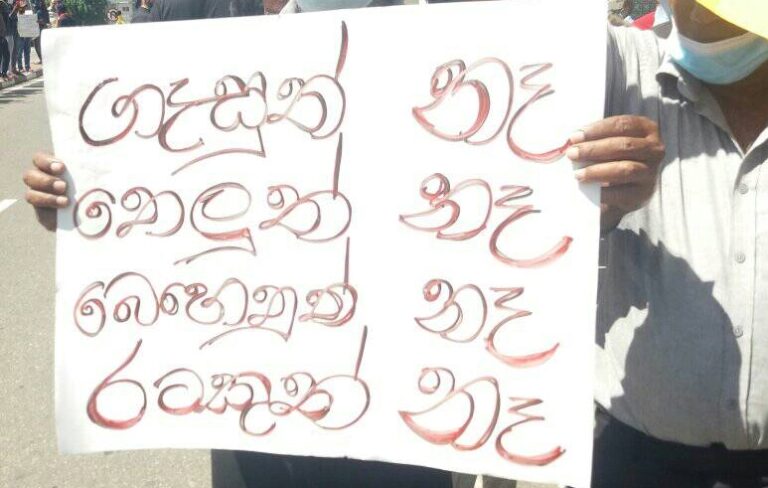 ගෑසුත් නෑ
තෙලුත් නෑ
බෙහෙතුත් නෑ
රටකුත් නෑ